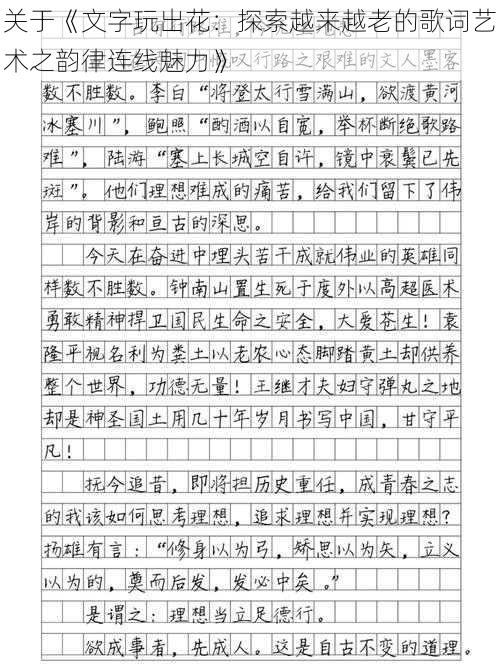 关于《文字玩出花：探索越来越老的歌词艺
术之韵律连线魅力》
叹行路之艰难的文人墨客
数不胜数。李白“将登太行雪满山，欲渡黄河
冰塞川”，鲍照“酌酒以自宽，举杯断绝歌路
难”，陆游“塞上长城空自许，镜中衰鬓已先
斑”。他们理想难成的痛苦，给我们留下了伟
岸的背影和亘古的深思。
今天在奋进中埋头苦干成就伟业的英雄同
样数不胜数。钟南山置生死于度外以高超医术
勇敢精神捍卫国民生命之安全，大爱苍生！袁
隆平视名利为粪土以老农心态脚踏黄土却供养
整个世界，功德无量！王继才夫妇守弹丸之地
却是神圣国土用几十年岁月书写中国，甘守平
凡！
抚今追昔，即将担历史重任，成青春之志
的我该如何思考理想，追求理想并实现理想？
扬雄有言：“修身以为弓，矫思以为矢，立义
以为的，奠而后发，发必中矣。”
是谓之：理想当立足德行。
欲成事者，先成人。这是自古不变的道理。